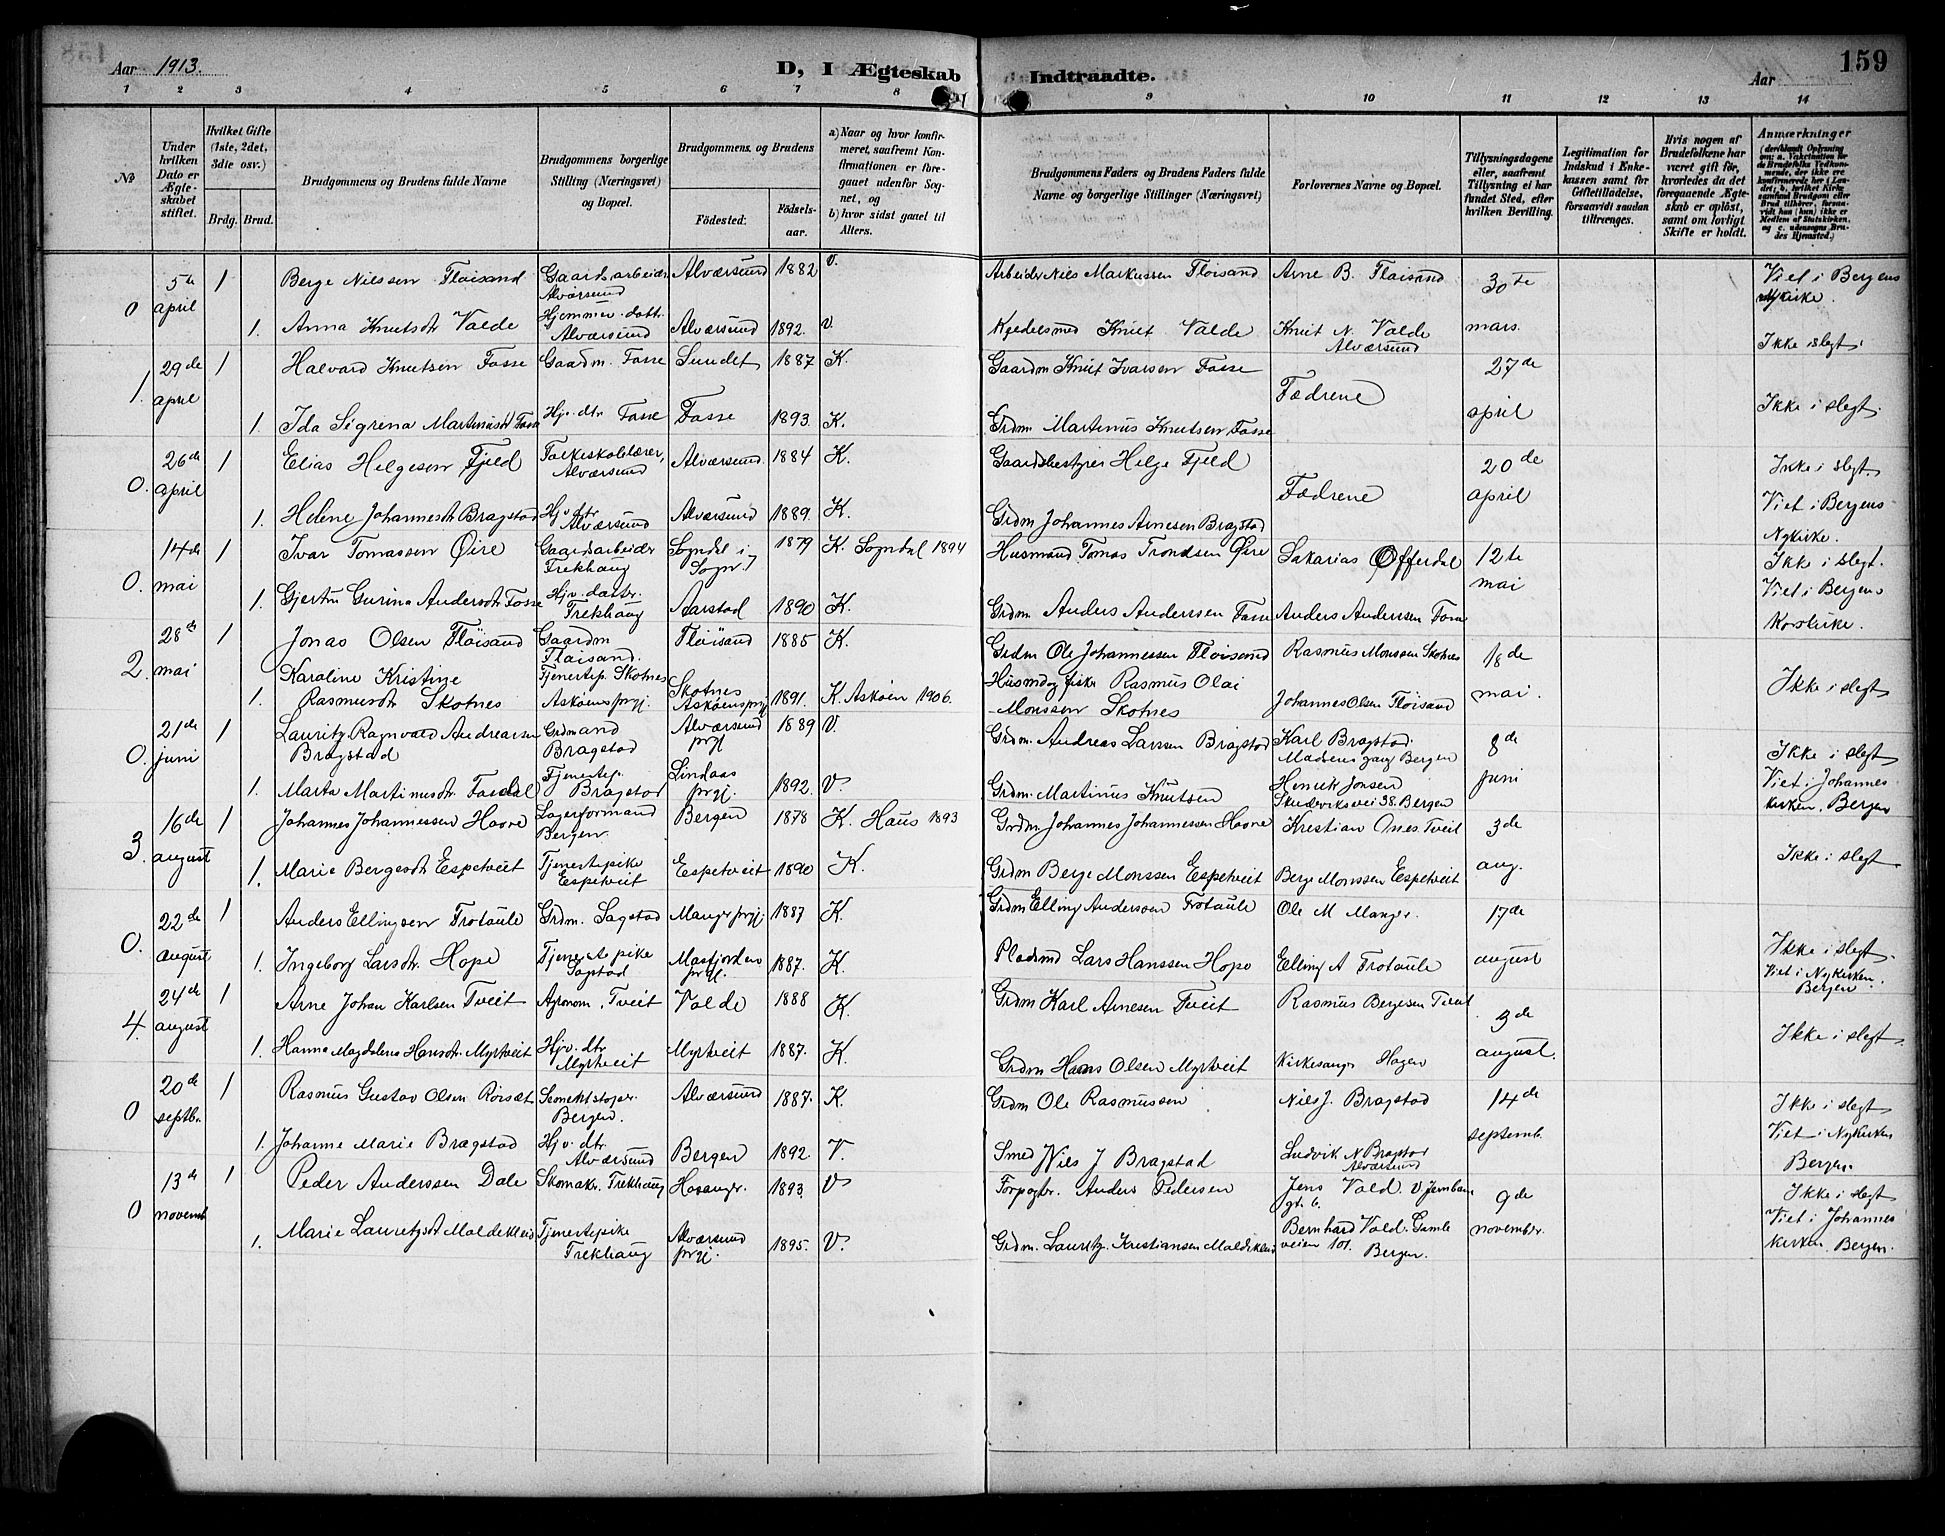 Aar 1913.
D, I Ægteskab Indtraadte.
Aar
159
1 2 3 4 5 6 7 8 9 10 11 12 13 14
No
Under hvilken Dato er Ægteskabet stiftet.
Hvilket Gifte (1ste, 2det, 3die osv.)
Brdg. Brud.
Brudgommens og Brudens fulde Navne
Brudgommens borgerlige Stilling (Næringsvei) og Bopæl.
Brudgommens og Brudens
Födested.
Födselsaar.
a) Naar og hvor konfirmeret, saafremt Konfirmationen er foregaaet udenfor Sognet, og
b) hvor sidst gaaet til Alters.
Brudgommens Faders og Brudens Faders fulde Navne og borgerlige Stillinger (Næringsvei)
Forlovernes Navne og Bopæl.
Tillysningsdagene eller, saafremt Tillysning ei har fundet Sted, efter hvilken Bevilling.
Legitimation for Indskud i Enkekassen samt for Giftetilladelse, forsaavidt saadan tiltrænges.
Hvis nogen af Brudefolkene har været gift för, hvorledes da det foregaaende Ægteskab er oplöst, samt om lovligt Skifte er holdt.
Anmærkninger
0 5te april 1 Berge Nilssen Fløisand Gaardsarbeider Alværsund Alværsund 1882 V. Arbeider Nils Markussen Fløisand Arne B. Fløisand 30te mars. Viet i Bergens Nykirke.
1. Anna Knutsdtr Valde Hjemmev. datt. Alværsund Alværsund 1892. V. Kjedelsmed Knut Valde Knut N. Valde Alværsund Ikke i slegt.
1. 29de april 1 Halvard Knutsen Fosse Gaardm. Fosse Sundet 1887 K. Gaardm Knut Ivarsen Fosse Fædrene 27de april
1. Ida Sigrina Martinusdt Fosse Hjv. dtr Fosse Fosse 1893. K. Grdm Martinus Knutsen Fosse Ikke i slegt.
0. 26de april 1 Elias Helgesen Fjeld Folkeskolelærer, Alværsund Alværsund. 1884 K. Gaardbestyrer Helge Fjeld Fædrene 20de april Ikke i slegt.
1. Helene Johannesdtr Bragstad Hjv dtr Alværsund Alværsund 1889. K. Grdm Johannes Arnesen Bragstad Viet i Bergens Nykirke.
0. 14de mai 1 Ivar Tomassen Øire Gaardsarbeider Frekhaug Sogndal i Sogn. 1879 K. Sogndal 1894 Husmand Tomas Trondsen Øire Sakarias Offerdal 12te mai Ikke i slegt.
1. Gjertru Gurina Andersdtr Fosse Hjv. datter. Frekhaug Aarstad 1890 K. Grdm. Anders Anderssen Fosse Anders Anderssen Fosse Viet i Bergens Korskirke.
2. 28de mai 1 Jonas Olsen Fløisand Gaardm Fløisand. Fløisand 1885 K. Grdm Ole Johannessen Fløisand Rasmus Monssen Skotnes 18de mai.
1. Karoline Kristine Rasmusdtr Skotnes Tjenestep. Skotnes Askøens prgj. Skotnes Askøens prgj 1891. K. Askøen 1906. Husmd og fisker Rasmus Olai Monssen Skotnes Johannes Olsen Fløisand Ikke i slegt
0. 21de juni 1 Lauritz Ragnvald Andreassen Bragstad Grdmand Bragstad Alværsund prgj 1889 V. Grdm. Andreas Larssen Bragstad Karl Bragstad. Madsens gang Bergen 8de juni Ikke i slegt
1. Marta Martinusdtr Fosdal Tjenestep. Bragstad Lindaas prgj. 1892. V. Grdm. Martinus Knutsen Henrik Jonsen Skudeviksvei 38. Bergen Viet i Johanneskirken, Bergen
3. 16de august 1 Johannes Johannessen Haare Lagerformand Bergen Bergen 1878 K. Haus 1893 Grdm Johannes Johannessen Haare Kristian Ones Tveit 3de aug.
1. Marie Bergesdtr Espetveit Tjenestepike Espetveit Espetveit 1890 K. Grdm Berge Monssen Espetveit Berge Monssen Espetveit Ikke i slegt
0. 22de august 1 Anders Ellingsen Trotaule Grdm. Sagstad Manger prgj. 1887 K. Grdm Elling Anderssen Trotaule Ole M Manger. 17de august
1. Ingeborg Larsdtr. Hope Tjenestepike Sagstad Masfjorden prgj. 1887. K. Pladsmd Lars Hanssen Hope Elling A Trotaule Ikke i slegt. Viet i Nykirken Bergen.
4. 24de august 1 Arne Johan Karlsen Tveit Agronom. Tveit Valde 1888 K. Grdm Karl Arnesen Tveit Rasmus Bergesen Tveit 3de august.
1. Hanna Magdalena Hansdtr. Myrtveit Hjv. dtr Myrtveit Myrtveit 1887. K. Grdm Hans Olsen Myrtveit Kirkesanger Hagen Ikke i slegt.
0 20de septbr. 1 Rasmus Gustav Olsen Rørsæt Bergen. Alværsund 1887. K. Grdm Ole Rasmussen Nils J. Bragstad 14de septemb. Ikke i slegt
1. Johanne Marie Bragstad Hjv. dtr. Alværsund Bergen 1892. V. Smed Nils J Bragstad Ludvik N Bragstad Alværsund Viet i Nykirken Bergen.
0 13de novemb 1 Peder Anderssen Dale Skomaker. Frekhaug Hosanger. 1893. V Anders Pedersen Jens Vold. V. Jernbane gt. 6. 9de november. Ikke i slegt
1. Marie Lauritzdt Moldekleiv Tjenestepike Frekhaug Alværsund prgj. 1895. V. Grdm. Lauritz Kristiansen Moldekleiv Bernhard Vold. Gamle veien 101. Bergen. Viet i Johannes kirken. Bergen.